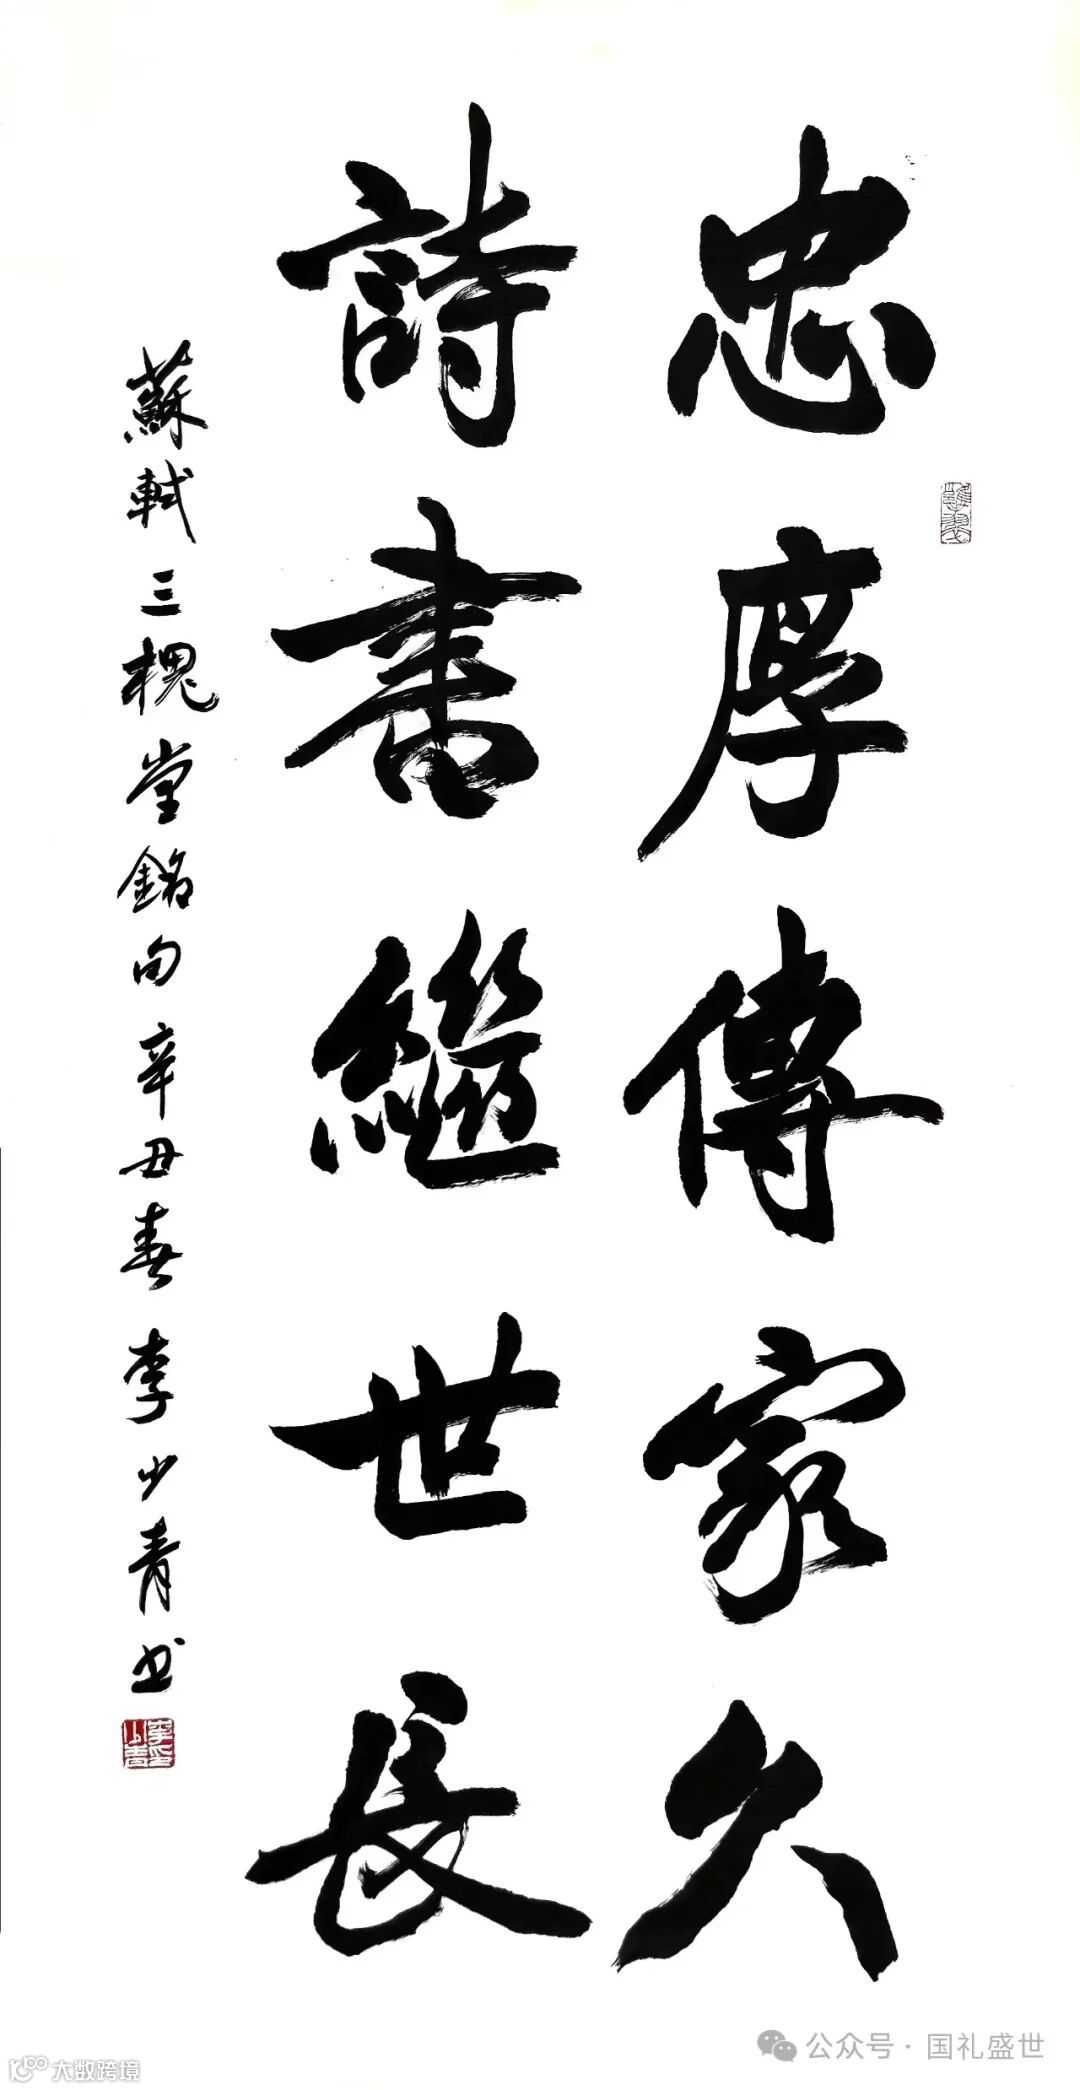 忠厚傳家久
詩書繼世長
蘇軾三槐堂銘句辛丑春李少青书
李少青印
公众号·国礼盛世
大数跨境